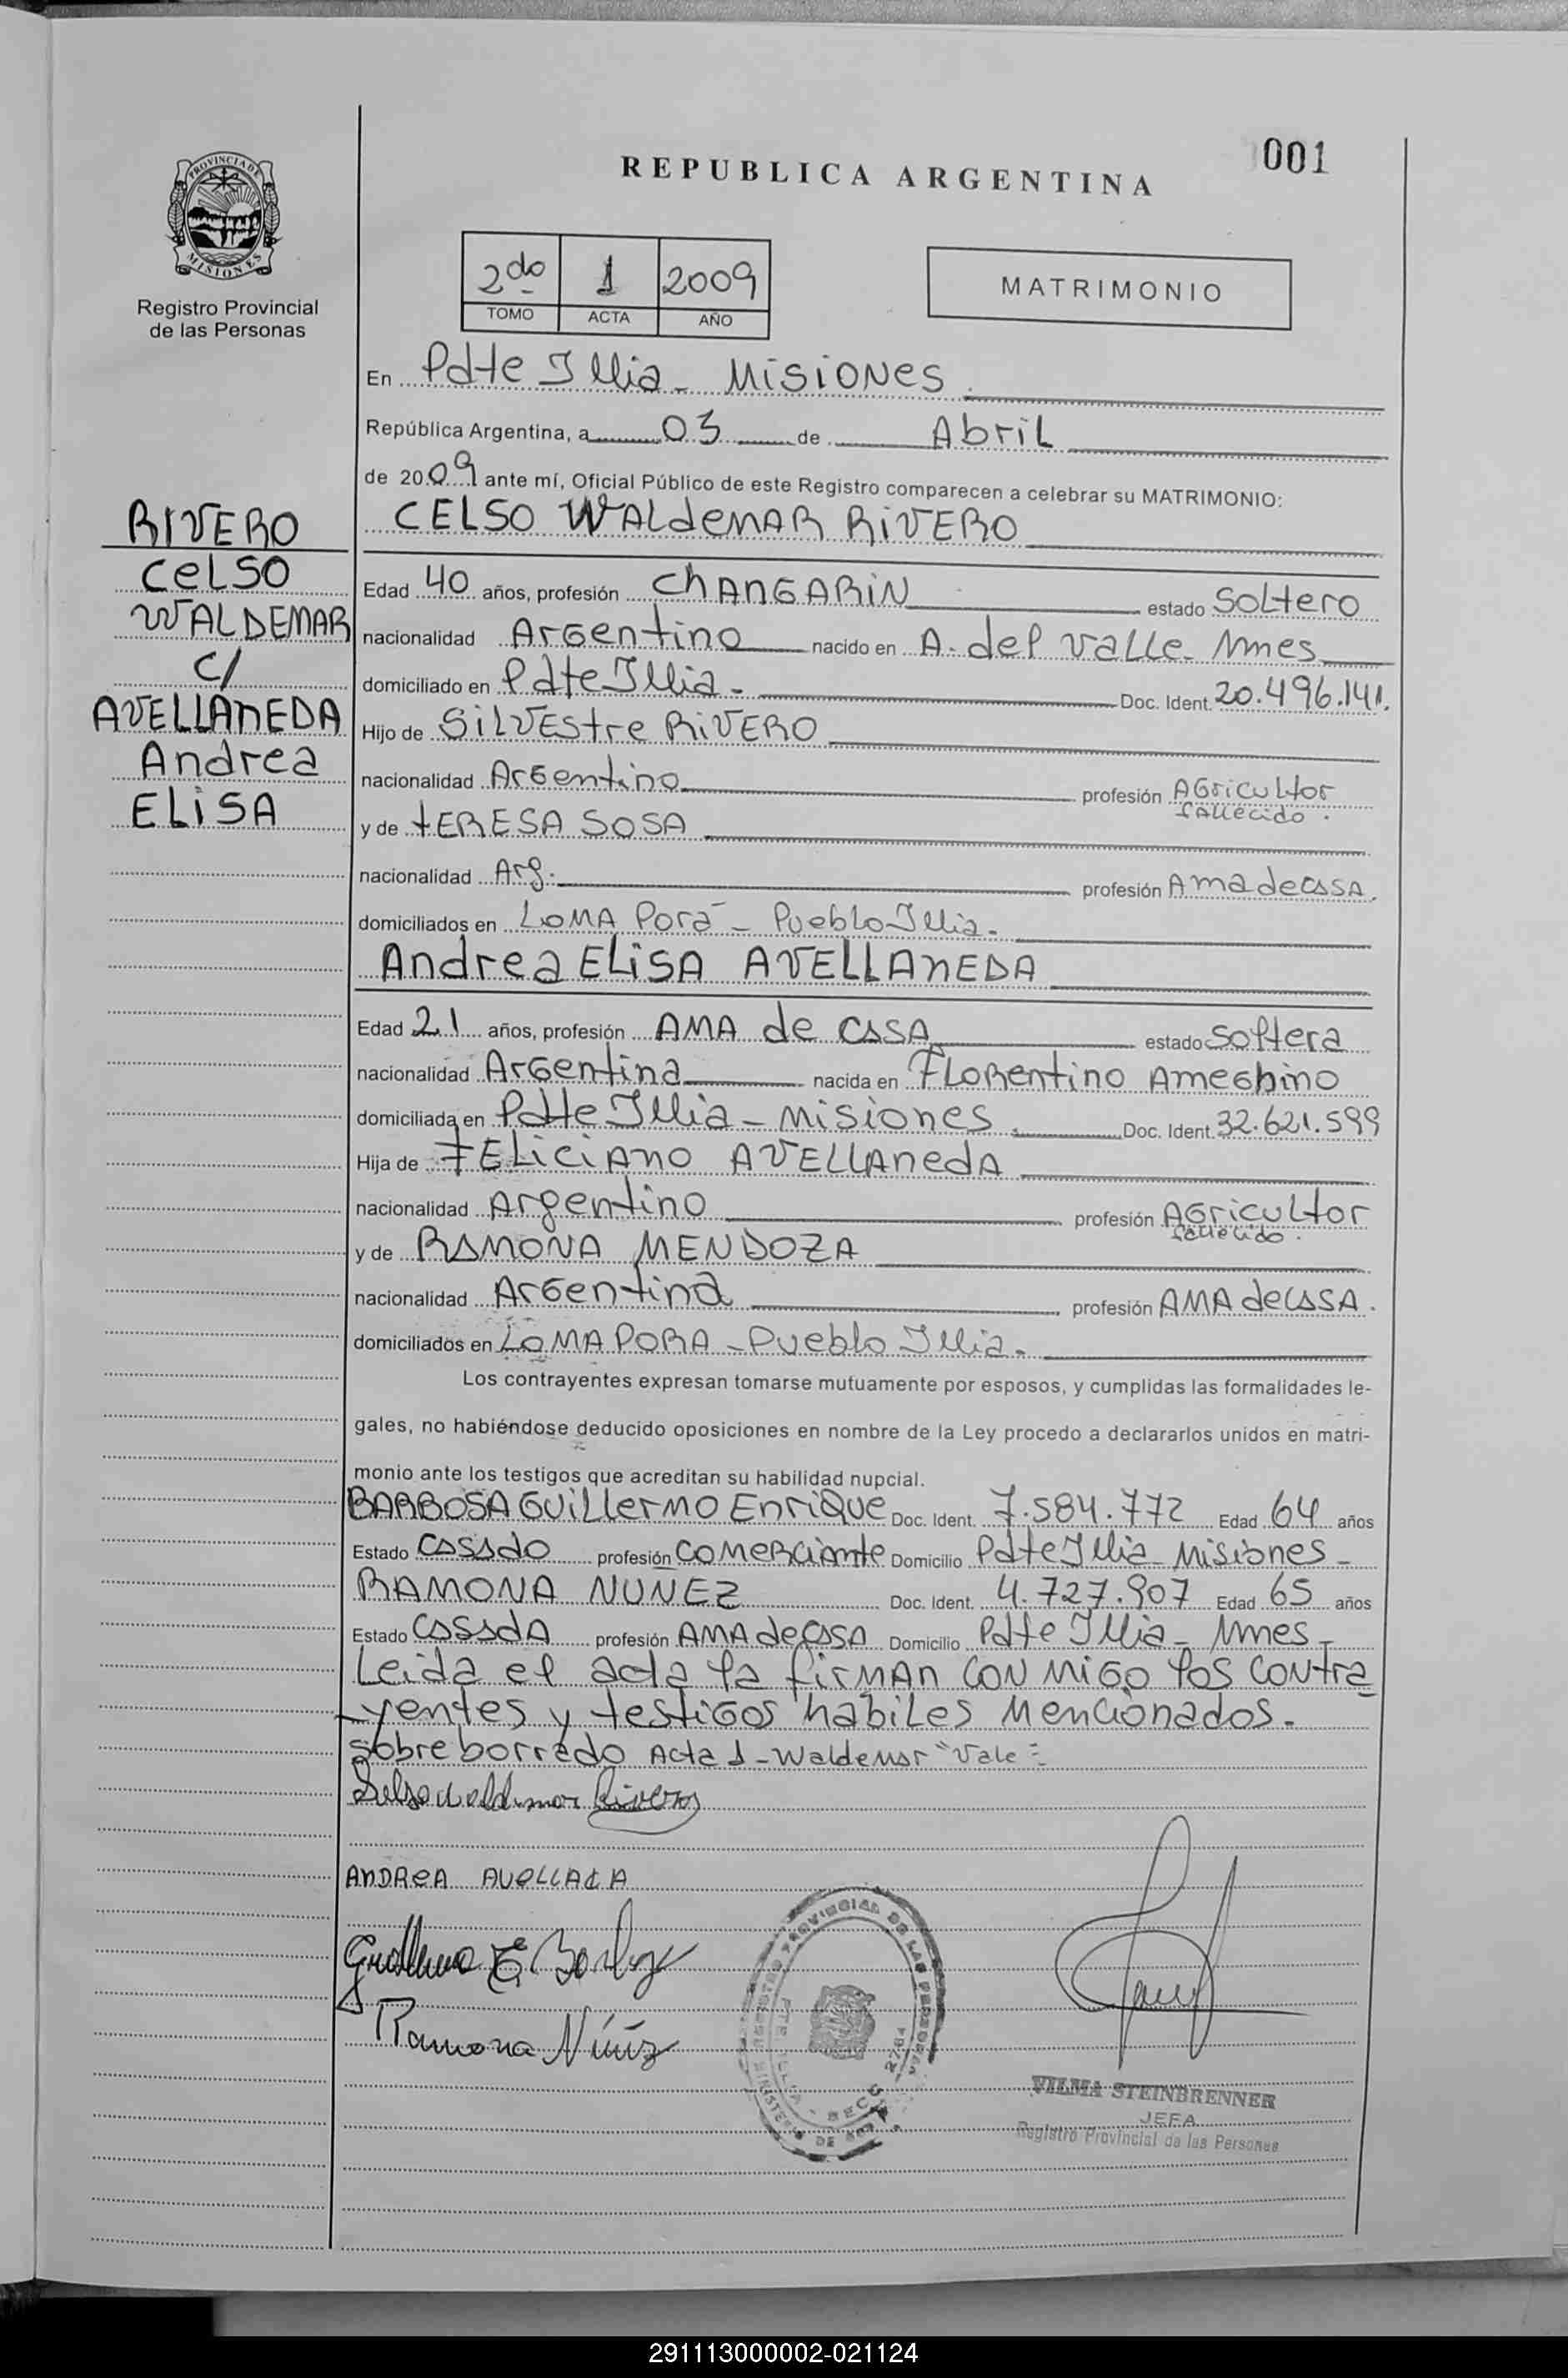 PROVINCIA DE
MISIONES
Registro Provincial
de las Personas
REPUBLICA ARGENTINA
001
2do 1 2009
TOMO ACTA AÑO
MATRIMONIO
En Pdte Illia - Misiones
República Argentina, a 03 de Abril
de 2009 ante mí, Oficial Público de este Registro comparecen a celebrar su MATRIMONIO:
RIVERO
CELSO
WALDEMAR
C/
AVELLANEDA
Andrea
ELISA
CELSO WALdeMAR RiVERO
Edad 40 años, profesión ChANGARIN estado SOLtero
nacionalidad Argentino nacido en A. del Valle Mnes
domiciliado en Pdte Illia - Doc. Ident. 20.496.141.
Hijo de SILVEStre RiVERO
nacionalidad Argentino profesión AGricuLtor
fallecido.
y de tERESA SOSA
nacionalidad Arg. profesión Ama de casa.
domiciliados en LOMA Porá - Pueblo Illia.
Andrea ELISA AVELLANEDA
Edad 21 años, profesión AMA de CASA estado soltera
nacionalidad Argentina nacida en FLORentino Ameghino
domiciliada en Pdte Illia - misiones. Doc. Ident. 32.621.599
Hija de FELICIANO AVELLANedA
nacionalidad Argentino profesión AGricuLtor
fallecido.
y de RAMONA MENDOZA
nacionalidad Argentina profesión AMA de CASA.
domiciliados en LOMA PORA - Pueblo Illia.
Los contrayentes expresan tomarse mutuamente por esposos, y cumplidas las formalidades le-
gales, no habiéndose deducido oposiciones en nombre de la Ley procedo a declararlos unidos en matri-
monio ante los testigos que acreditan su habilidad nupcial.
BARBOSA GuiLLerMO EnriQue Doc. Ident. 7.584.772 Edad 64 años
Estado CASAdO profesión COMERCiante Domicilio Pdte Illia Misiones -
RAMONA NUNEZ Doc. Ident. 4.727.907 Edad 65 años
Estado CASAdA profesión AMA de CASA Domicilio Pdte Illia - Mnes -
Leida el acta la firMAn CON MiGO los contra
yentes y testiGOS habiLes Mencionados.
Sobre borrado Acta 1 - Waldemar "Vale"
Selso Waldimar Riveros
ANDREA AVELLADA
Guillermo E Barboza
Ramona Núñez
REGISTRO PROVINCIAL DE LAS PERSONAS
VILMA STEINBRENNER
JEFA
Registro Provincial de las Personas
291113000002-021124